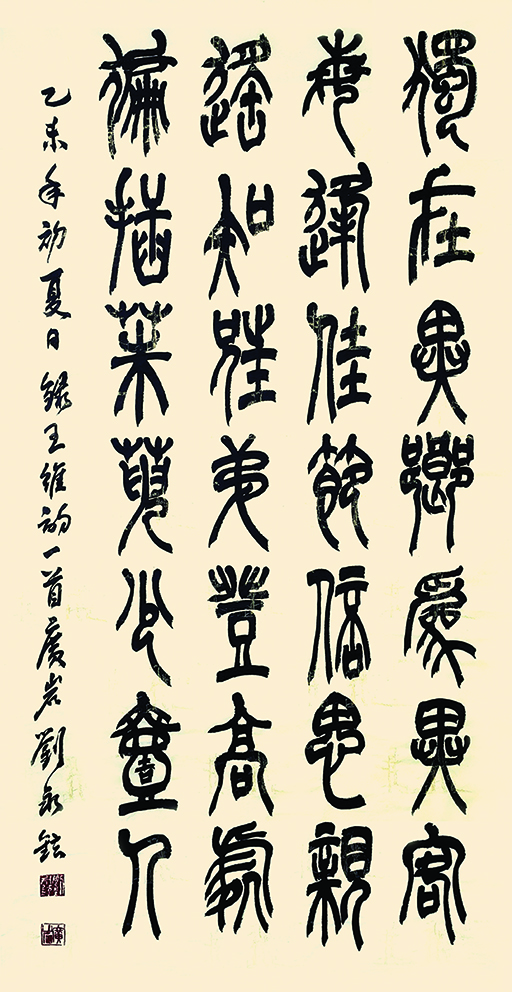 獨在異鄉為異客
每逢佳節倍思親
遙知兄弟登高處
徧插茱萸少壹人
乙未年初夏日錄王維詩一首廣岩劉永鋐